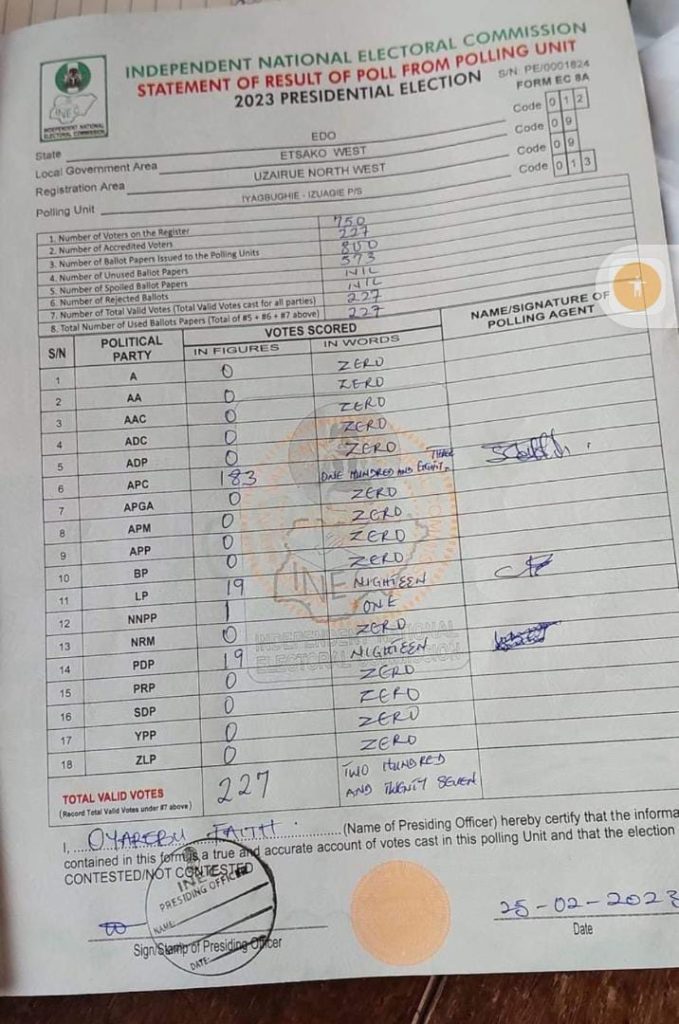 INDEPENDENT NATIONAL ELECTORAL COMMISSION
STATEMENT OF RESULT OF POLL FROM POLLING UNIT
2023 PRESIDENTIAL ELECTION
S/N: PE/0001824
FORM EC 8A
INEC
INDEPENDENT NATIONAL
ELECTORAL COMMISSION
State EDO Code 0 1 2
Local Government Area ETSAKO WEST Code 0 9
Registration Area UZAIRUE NORTH WEST Code 0 9
Polling Unit IYAGBUGHIE - IZUAGIE P/S Code 0 1 3
1. Number of Voters on the Register 750
2. Number of Accredited Voters 227
3. Number of Ballot Papers Issued to the Polling Units 800
4. Number of Unused Ballot Papers 573
5. Number of Spoiled Ballot Papers NIL
6. Number of Rejected Ballots NIL
7. Number of Total Valid Votes (Total Valid Votes cast for all parties) 227
8. Total Number of Used Ballots Papers (Total of #5 + #6 + #7 above) 227
S/N POLITICAL PARTY VOTES SCORED NAME/SIGNATURE OF POLLING AGENT
IN FIGURES IN WORDS
1 A 0 ZERO
2 AA 0 ZERO
3 AAC 0 ZERO
4 ADC 0 ZERO
5 ADP 0 ZERO
6 APC 183 ONE HUNDRED AND EIGHTY THREE
7 APGA 0 ZERO
8 APM 0 ZERO
9 APP 0 ZERO
10 BP 0 ZERO
11 LP 19 NIGHTEEN
12 NNPP 1 ONE
13 NRM 0 ZERO
14 PDP 19 NIGHTEEN
15 PRP 0 ZERO
16 SDP 0 ZERO
17 YPP 0 ZERO
18 ZLP 0 ZERO
INEC
INDEPENDENT NATIONAL
ELECTORAL COMMISSION
TOTAL VALID VOTES 227 TWO HUNDRED AND TWENTY SEVEN
(Record Total Valid Votes under #7 above)
I, OYAREBU FAITH (Name of Presiding Officer) hereby certify that the informa
contained in this form is a true and accurate account of votes cast in this polling Unit and that the election
CONTESTED/NOT CONTESTED
INEC
PRESIDING OFFICER
NAME:
DATE:
25-02-2023
Sign/Stamp of Presiding Officer
Date